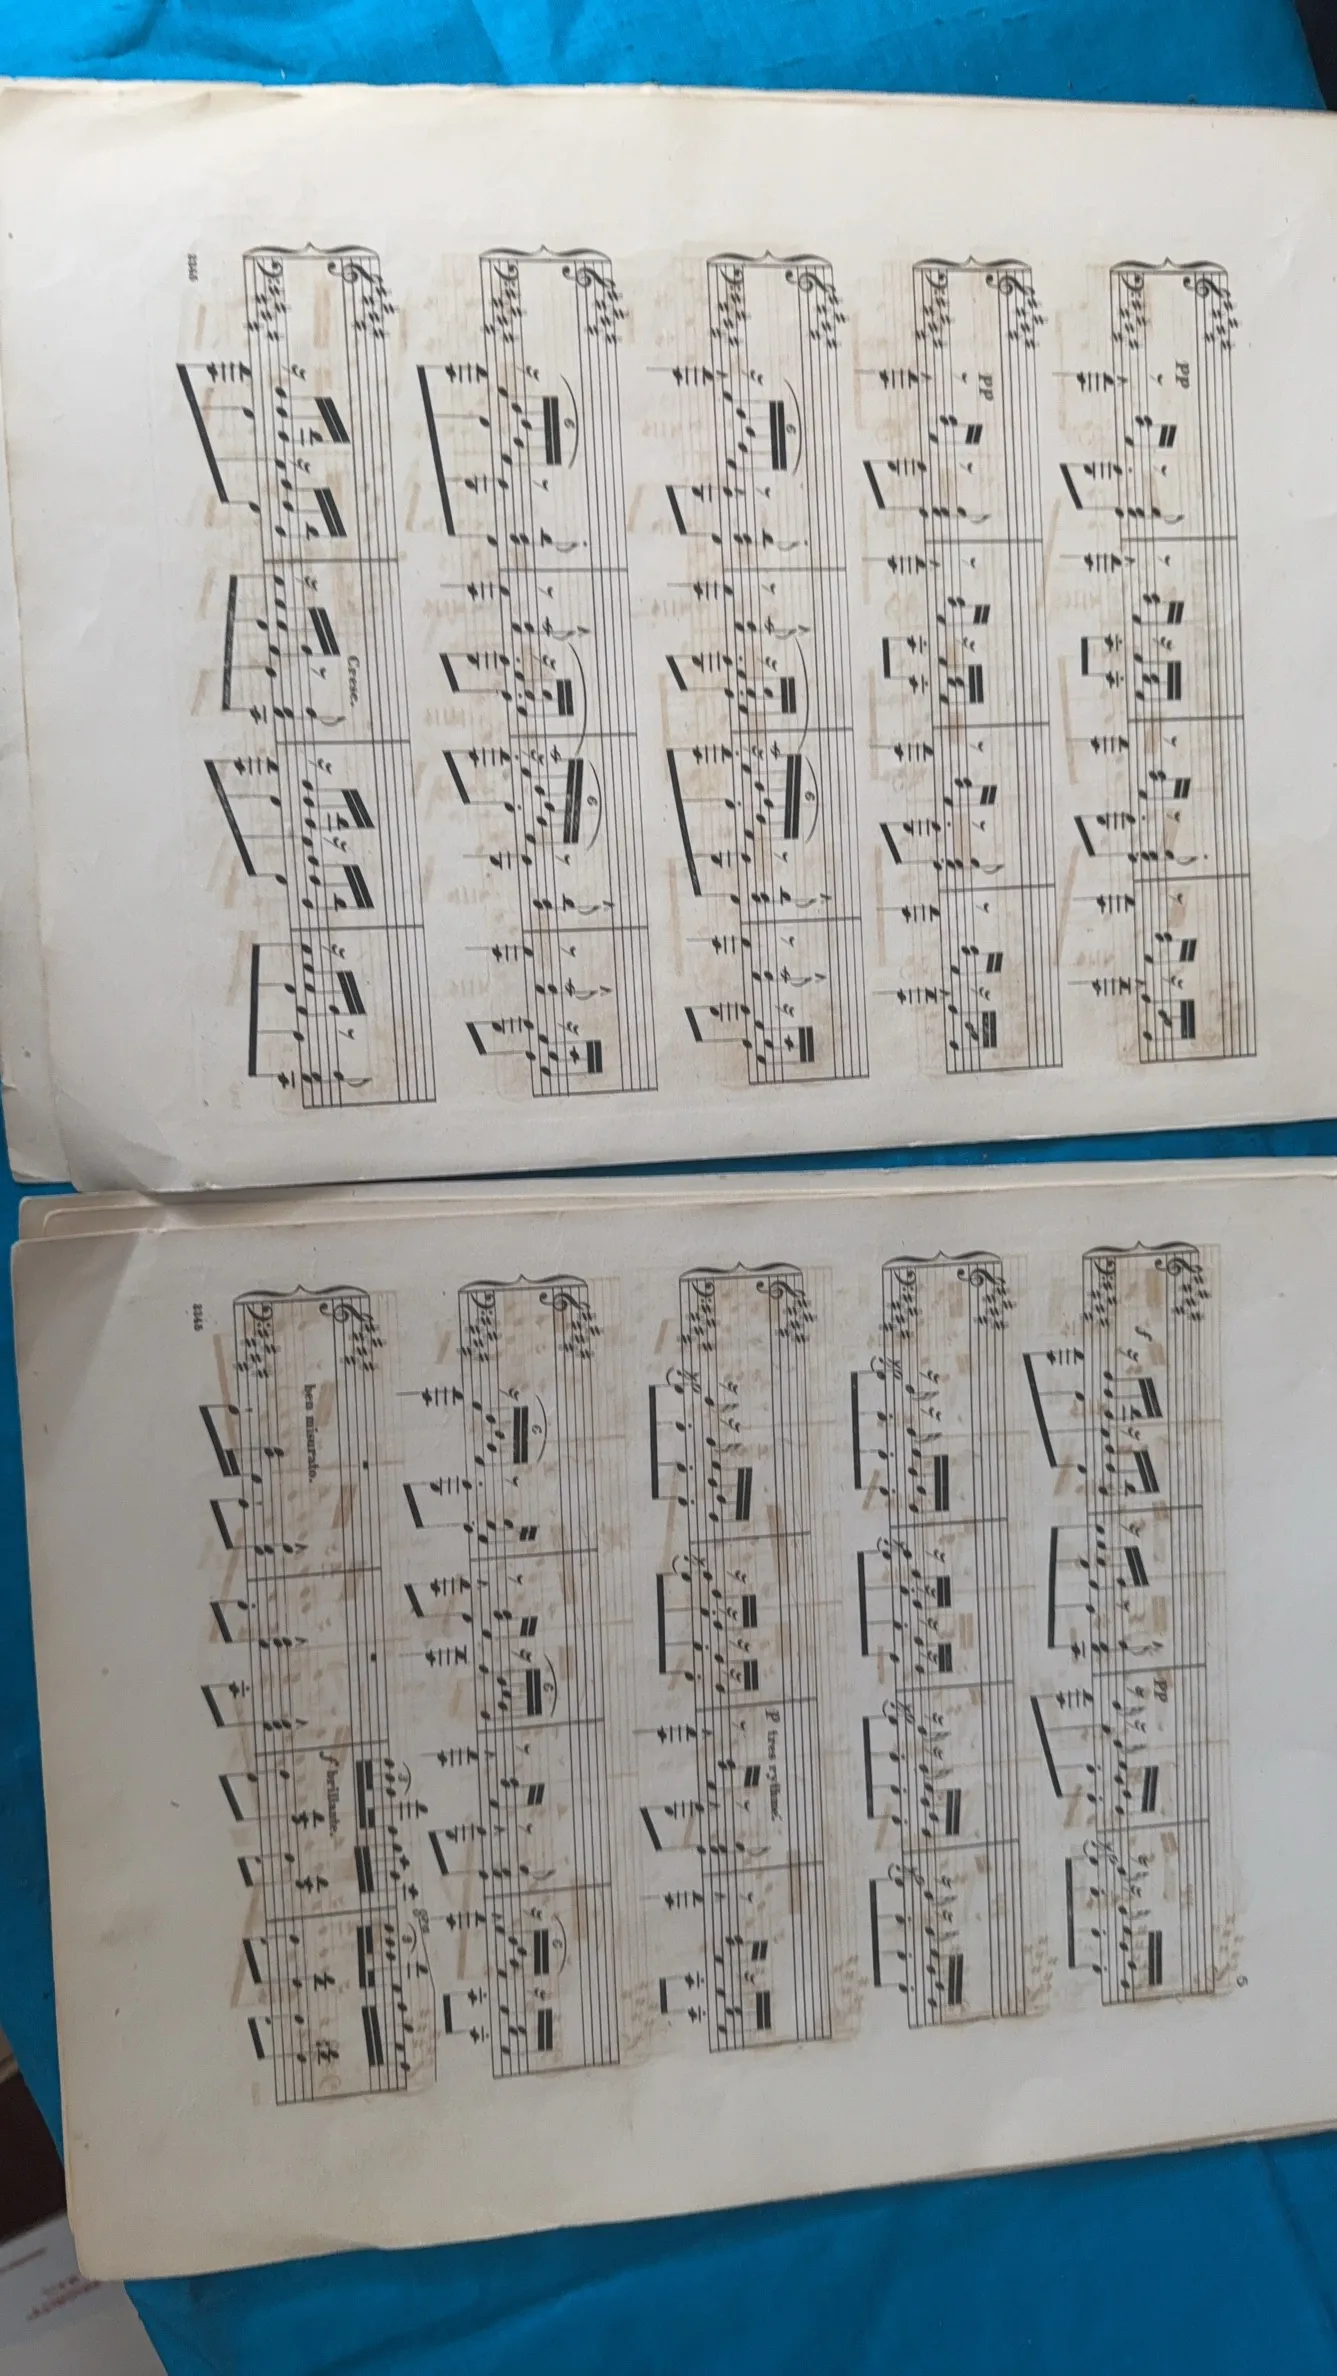 pp
pp
6
6
6
6
6
Cresc.
2345
5
f
pp
p tres rythmé.
6
6
6
ben misurato.
f brillante.
3
8va
3
2345